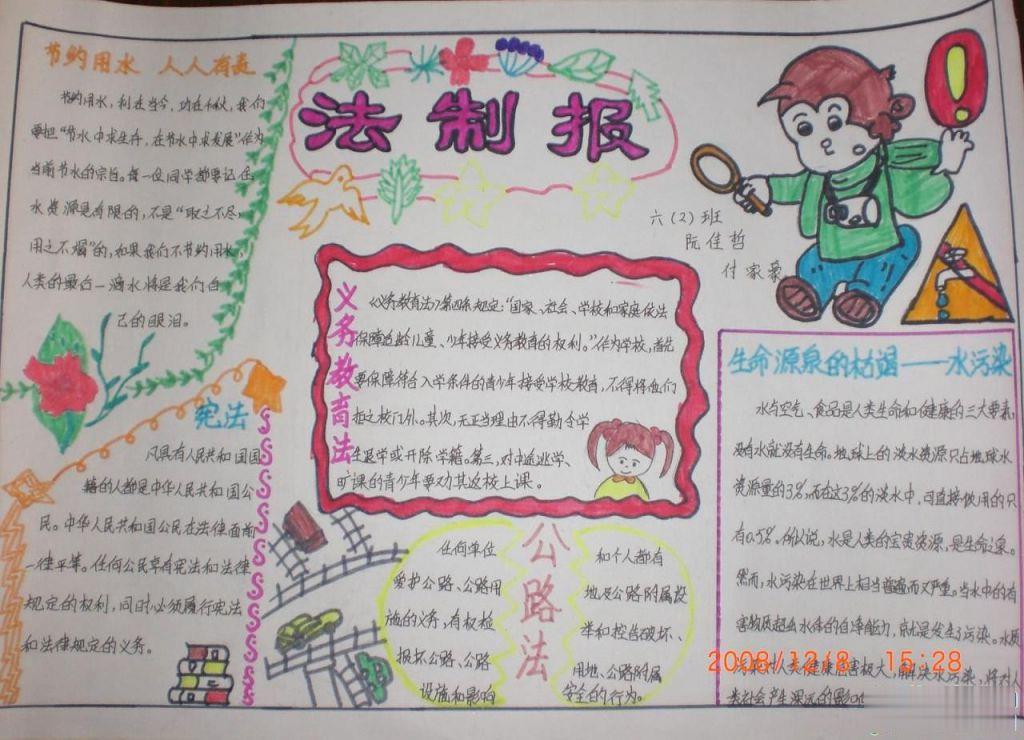 法制报
六（2）班
阮佳哲
付家豪
节约用水 人人有责
节约用水，利在当今，功在千秋，我们
要把“节水中求生存，在节水中求发展”作为
当前节水的宗旨。每一位同学都要记住
水资源是有限的，不是“取之不尽，
用之不竭”的，如果我们不节约用水，
人类的最后一滴水将是我们自
己的眼泪。
宪法
凡具有人民共和国国
籍的人都是中华人民共和国公
民。中华人民共和国公民在法律面前
一律平等。任何公民享有宪法和法律
规定的权利，同时必须履行宪法
和法律规定的义务。
义务教育法
《义务教育法》第四条规定：“国家、社会、学校和家庭依法
保障适龄儿童、少年接受义务教育的权利。”作为学校，首先
要保障符合入学条件的青少年接受学校教育，不得将他们
拒之校门外。其次，无正当理由不得勒令学
生退学或开除学籍。第三，对中途逃学、
旷课的青少年要劝其返校上课。
公路法
任何单位
爱护公路、公路用
施的义务，有权检
损坏公路、公路
设施和影响
和个人都有
地及公路附属设
举和控告破坏、
用地、公路附属
安全的行为。
生命源泉的枯竭——水污染
水与空气、食品是人类生命和健康的三大要素，
没有水就没有生命。地球上的淡水资源只占地球水
资源量的3%，而在这3%的淡水中，可直接饮用的只
有0.5%。所以说，水是人类的宝贵资源，是生命之泉。
然而，水污染在世界上相当普遍而又严重。当水中的有
害物质超出水体的自净能力，就是发生了污染。水质
对人类健康危害极大，解决水污染，将对人
类社会产生深远的影响
2008/12/8 15:28